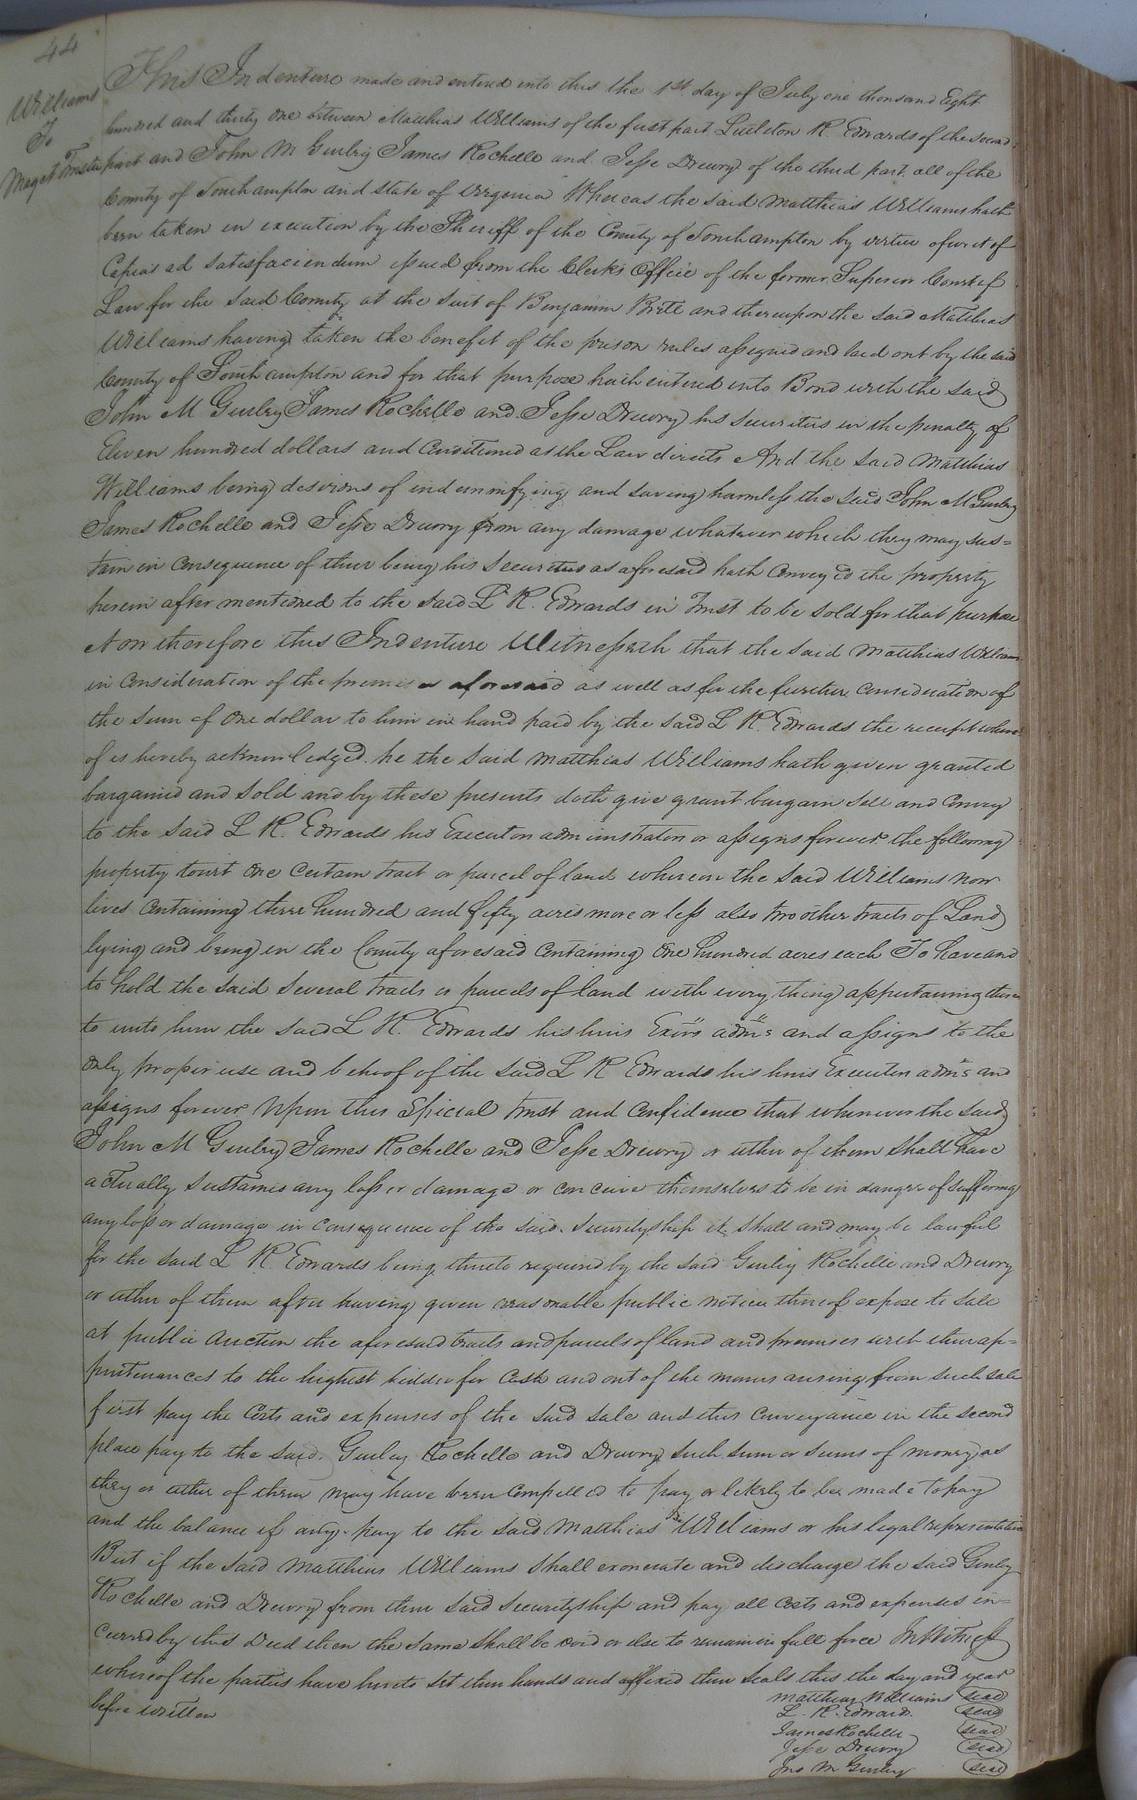 44
Williams
To
Maget Trustee
This Indenture made and entered into this the 1st day of July one thousand Eight
hundred and thirty one between Matthias Williams of the first part Littleton R. Edwards of the second
part and John M Gurley James Rochelle and Jesse Drewry of the third part all of the
County of Southampton and state of Virginia Whereas the said Matthias Williams hath
been taken in execution by the Sheriff of the County of Southampton by virtue of writ of
Capias ad Satisfaciendum issued from the Clerks Office of the former Superior Court of
Law for the said County at the suit of Benjamin Britt and thereupon the said Matthias
Williams having taken the benefit of the prison rules assigned and laid out by the said
County of Southampton and for that purpose hath entered into Bond with the said
John M Gurley James Rochelle and Jesse Drewry his securities in the penalty of
Eleven hundred dollars and Conditioned as the Law directs And the said Matthias
Williams being desirous of indemnifying and saving harmless the said John M Gurley
James Rochelle and Jesse Drewry from any damage whatever which they may sus=
tain in Consequence of their being his Securities as aforesaid hath Conveyed the property
herein after mentioned to the said L R. Edwards in Trust to be sold for that purpose
Now therefore this Indenture Witnesseth that the said Matthias Williams
in Consideration of the premises aforesaid as well as for the further Consideration of
the sum of One dollar to him in hand paid by the said L R. Edwards the receipt where
of is hereby acknowledged he the said Matthias Williams hath given granted
bargained and sold and by these presents doth give grant bargain sell and Convey
to the said L R. Edwards his Executors administrators or assigns forever the following
property towit One Certain tract or parcel of land whereon the said Williams now
lives Containing three hundred and fifty acres more or less also two other tracts of Land
lying and being in the County aforesaid Containing One hundred acres each To have and
to hold the said several tracts or parcels of land with every thing appertaining there
to unto him the said L R. Edwards his heirs Exors adms and assigns to the
only proper use and behoof of the said L R Edwards his heirs Executors adms and
assigns forever Upon this Special trust and Confidence that whenever the said
John M Gurley James Rochelle and Jesse Drewry or either of them shall have
actually sustained any loss or damage or conceive themselves to be in danger of suffering
any loss or damage in Consequence of the said Securityship it shall and may be lawful
for the said L R. Edwards being thereto required by the said Gurley Rochelle and Drewry
or either of them after having given reasonable public notice thereof expose to sale
at public Auction the aforesaid tracts and parcels of land and premises with their ap=
purtenances to the highest bidder for Cash and out of the monies arising from such sale
first pay the Costs and expenses of the said sale and this Conveyance in the second
place pay to the said Gurley Rochelle and Drewry such sum or sums of money as
they or either of them may have been Compelled to pay or likely to be made to pay
and the balance if any pay to the said Matthias Williams or his legal representative
But if the said Matthias Williams shall exonerate and discharge the said Gurley
Rochelle and Drewry from their said Securityship and pay all Costs and expenses in=
curred by this Deed then the same shall be void or else to remain in full force In Witness
whereof the parties have hereto set their hands and affixed their seals this the day and year
before written
Matthias Williams seal
L. R. Edwards seal
James Rochelle seal
Jesse Drewry seal
Jno M Gurley seal